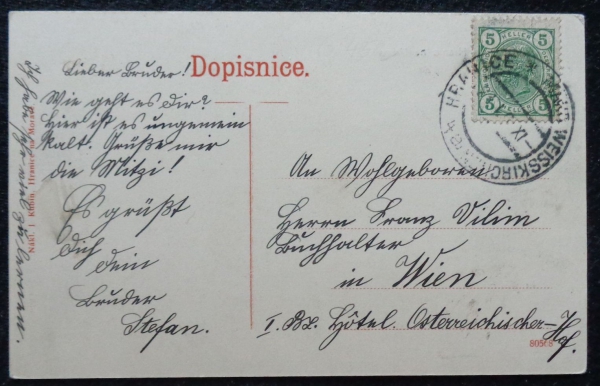 Dopisnice.
Lieber Bruder!
Wie geht es Dir?
Hier ist es ungemein
kalt. Grüße mir
die Mitzi!
Es grüßt
Dich
Dein
Bruder
Stefan.
Ich habe
zu lernen.
An Wohlgeboren
Herrn Franz Vilim
Buchhalter
in Wien
I. Bz. Hôtel. Österreichischer-
Hof.
5 HELLER 5
5 5
HRANICE
MÄHR. WEISSKIRCHEN
XI
80568